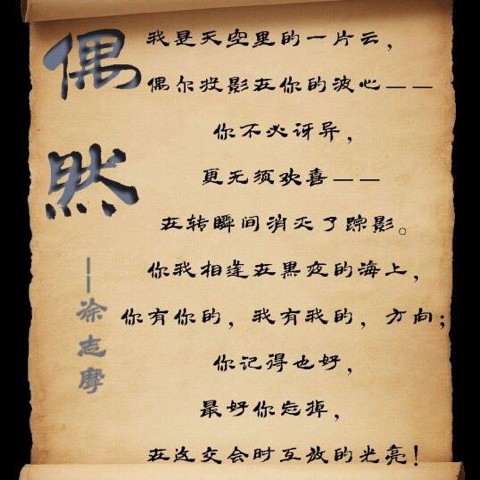 偶然
——徐志摩
我是天空里的一片云，
偶尔投影在你的波心——
你不必讶异，
更无须欢喜——
在转瞬间消灭了踪影。
你我相逢在黑夜的海上，
你有你的，我有我的，方向；
你记得也好，
最好你忘掉，
在这交会时互放的光亮！